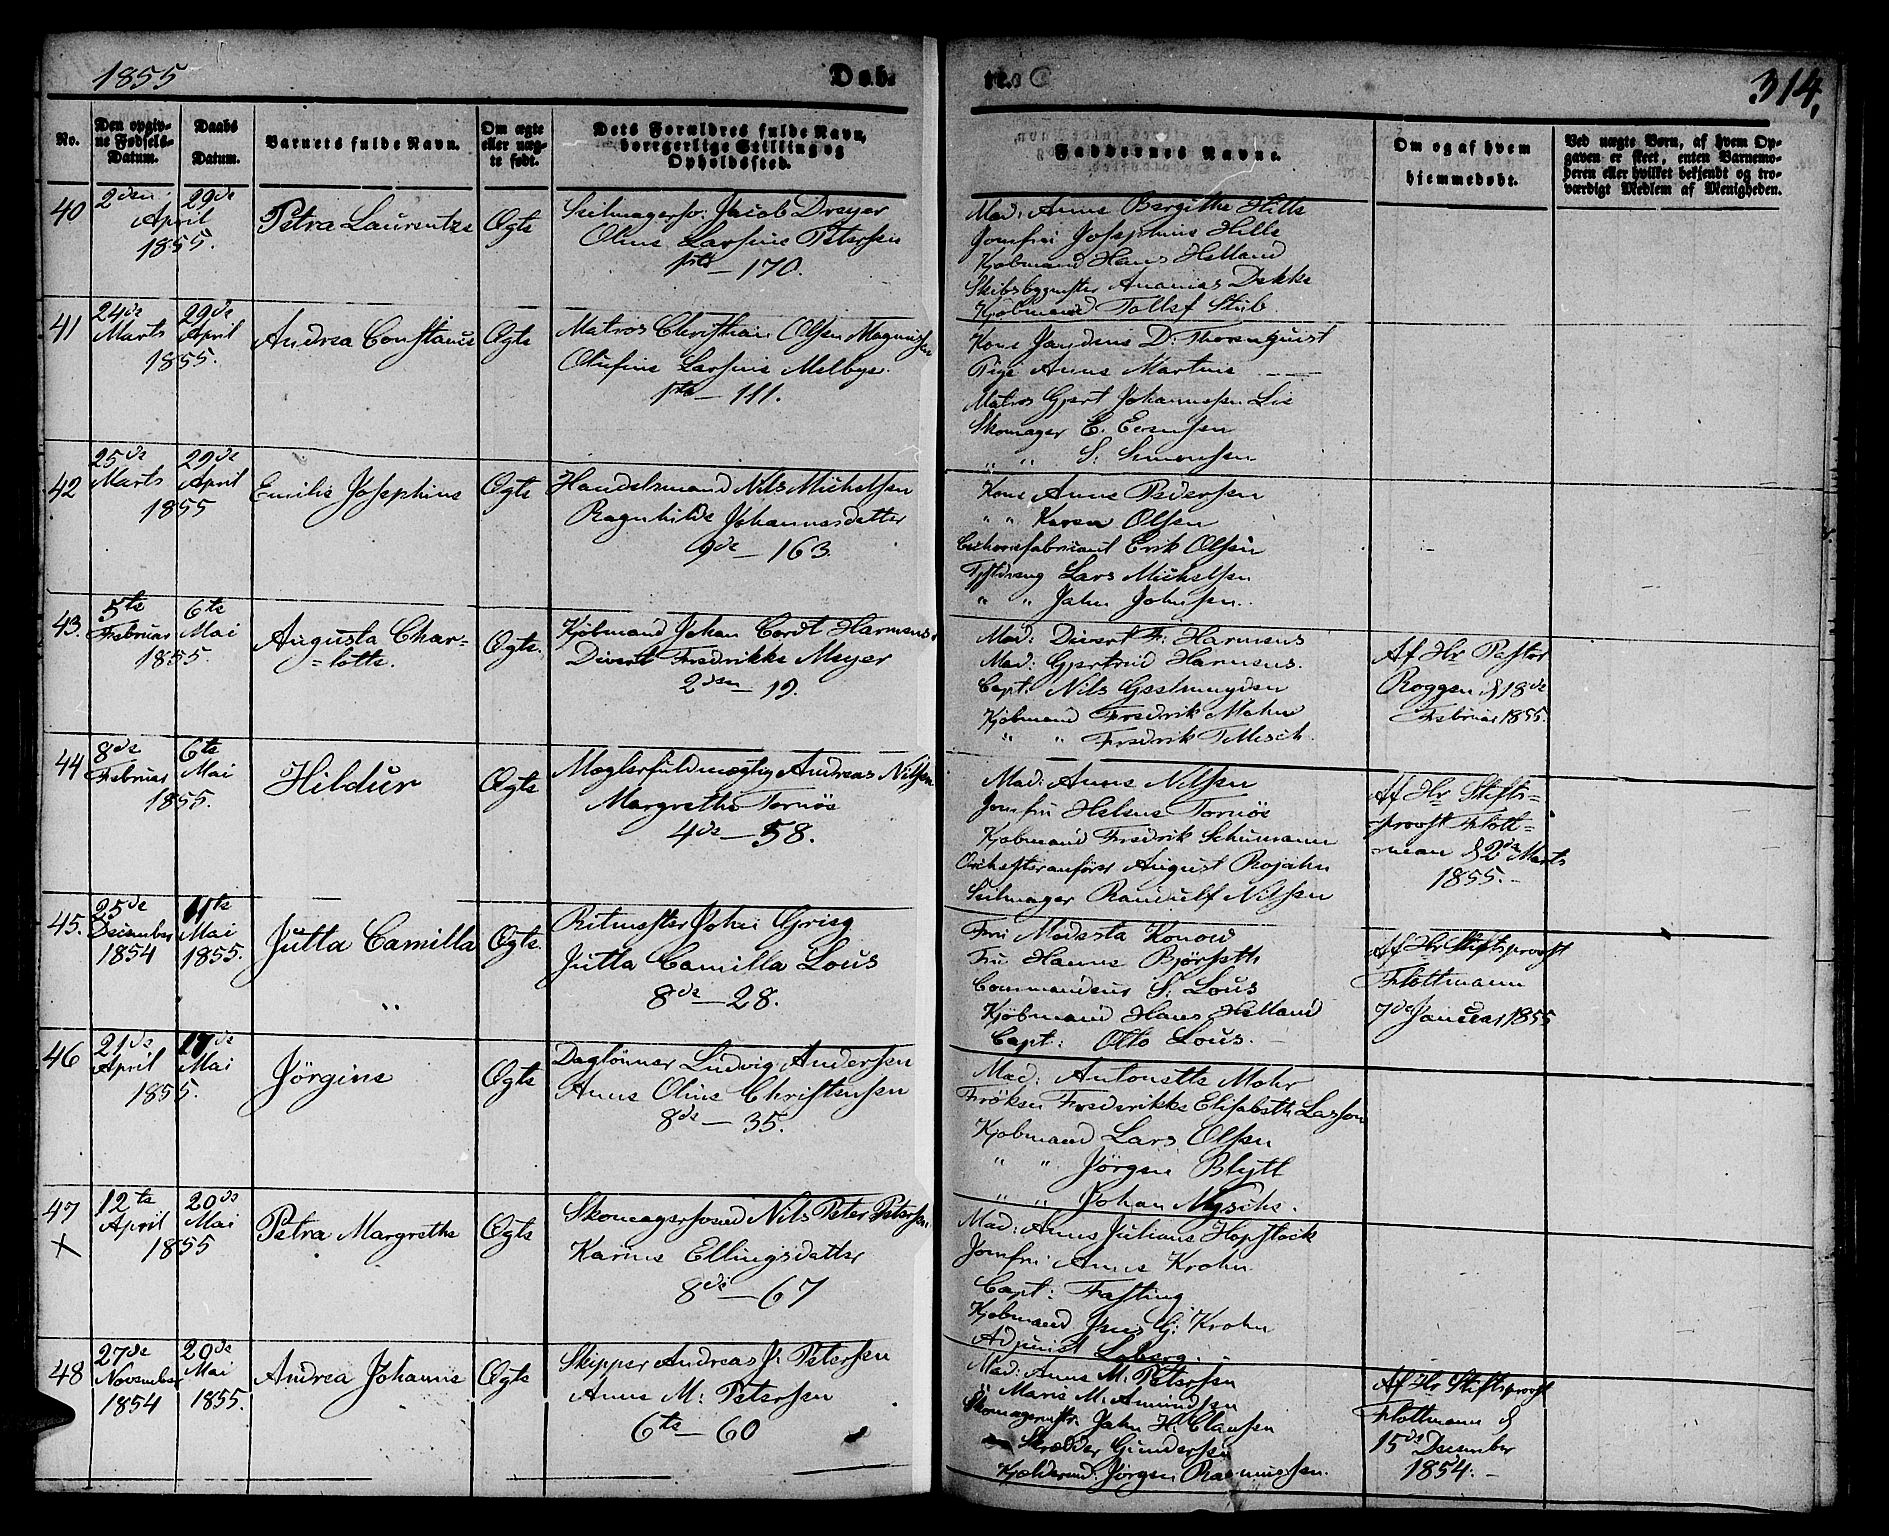 1855
Døb-
te.
314.
No.
Den opgiv-
ne Fødsels-
Datum.
Daabs
Datum.
Barnets fulde Navn.
Om ægte
eller uæg-
te født.
Dets Forældres fulde Navn,
borgerlige Stilling og
Opholdssted.
Faddernes Navne.
Om og af hvem
hjemmedøbt.
Ved uægte Børn, af hvem Op-
gaven er skeet, enten Barnemo-
deren eller hvilket bekjendt og tro-
værdigt Medlem af Menigheden.
40
2den
April
1855.
29de
Petra Laurentze
Ægte
Seilmagersv: Jacob Dreyer
Oline Larsine Petersen
1ste — 170.
Mad: Anne Bergithe Hille
Jomfru Josephine Hille
Kjøbmand Hans Helland
Skibsbygmester Ananias Dekke
Kjøbmand Tollef Stub
41
24de
Marts
29de
April
1855.
Andrea Constance
Ægte
Matros Christian Olsen Magnusen
Olufine Larsine Melbye.
1ste — 111.
Kone D: Thorenquist
Pige Anne Martine
Matros Gjert Johannesen Lie
Skomager C. Evensen
" " S: Simonsen
42
25de
Marts
29de
April
1855
Emilie Josephine
Ægte
Handelsmand Nils Michelsen
Ragnhilde Johannesdatter
9de — 163
Kone Anne Pedersen
" " Karen Olsen
Cichoriefabricant Erik Olsen
Lars Michelsen
" " John Johnsen.
43.
5te
Februar
6te
Mai
1855.
Augusta Char-
=lotte.
Ægte.
Kjøbmand Johan Cordt Harmens,
Divert Fredrikke Meyer
2den — 19.
Mad: Divert Fr: Harmens
Mad: Gjertrud Harmens.
Capt: Nils Geelmuyden
Kjøbmand Fredrik Mohn
" " Fredrik
Af Hr Pastor
Roggen d 18de
Februar 1855.
44
8de
Februar
6te
Mai
1855.
Hildur
Ægte
Mæglerfuldmægtig Andreas Nilsen
Margrethe Tornöe
4de — 58.
Mad: Anne Nilsen
Jomfru Helene Tornöe
Kjøbmand Fredrik Schumann
Orchesteranfører August Rojahn
Seilmager Randulf Nilsen
Af Hr Stifts-
provst Flott-
=man d 2de Marts
1855.-
45.
25de
December
1854
11te
Mai
1855.
Jutta Camilla
Ægte.
Ritmester John Grieg
Jutta Camilla Lous
8de — 28.
Fru Modesta Konow
Fru Hanne Bjørseth
Commandeur S. Lous
Kjøbmand Hans Helland
Capt: Otto Lous.
Af Hr Stiftsprovst
Flottmann
7de Januar 1855
46
21de
April
17de
Mai
1855.
Jørgine
Ægte
Daglönner Ludvig Andersen
Anne Oline Christensen
8de — 35.
Mad: Antonette Mohr
Frøken Frederikke Elisabeth Lasson
Kjøbmand Lars Olsen
" " Jørgen Blytt
" " Johan Mÿsche.
47
X
12te
April
20de
Mai
1855
Petra Margrethe
Ægte
Skomagersvend Nils Peter Petersen
Karine Ellingsdatter
8de — 67
Mad: Anne Juliane Hopstock
Jomfru Anne Krohn
Capt: Fasting
Kjøbmand Jens G: Krohn
Adjunct Loberg.
48
27de
November
1854
20de
Mai
1855.
Andrea Johanne
Ægte
Skipper Andreas J. Petersen
Anne M: Petersen
6te — 60
Mad: Anne M. Petersen
" Marie M. Amundsen
Skomagermstr: John H. Clausen
Skrædder Gundersen
Kjælderm: Jørgen Rasmussen.
Af Hr Stiftsprovst
Flottmann d
15de December
1854.-